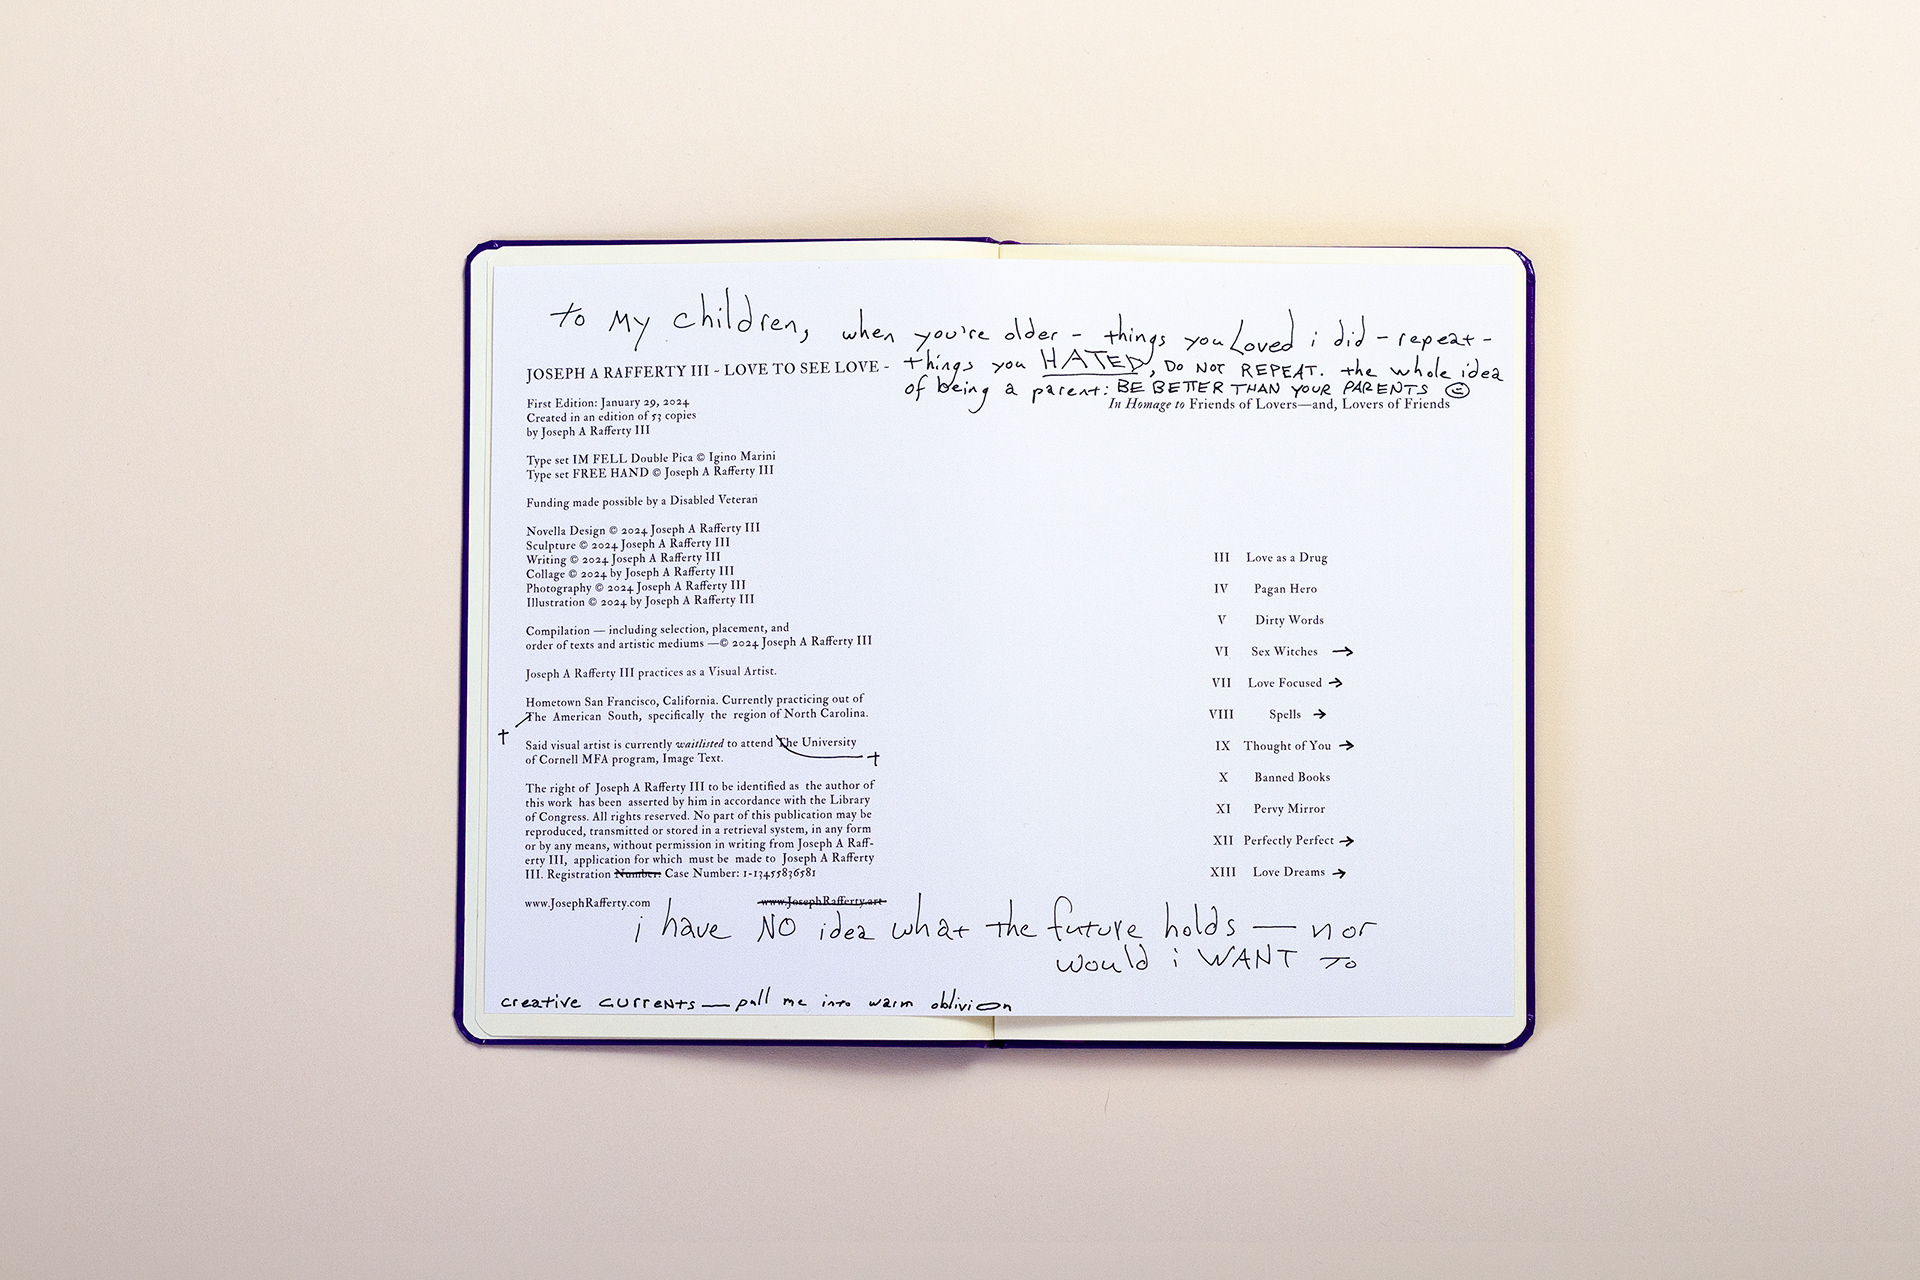 to my children, when you're older - things you Loved i did - repeat -
JOSEPH A RAFFERTY III - LOVE TO SEE LOVE - things you HATED, DO NOT REPEAT. the whole idea
of being a parent: BE BETTER THAN YOUR PARENTS
In Homage to Friends of Lovers—and, Lovers of Friends
First Edition: January 29, 2024
Created in an edition of 53 copies
by Joseph A Rafferty III
Type set IM FELL Double Pica © Igino Marini
Type set FREE HAND © Joseph A Rafferty III
Funding made possible by a Disabled Veteran
Novella Design © 2024 Joseph A Rafferty III
Sculpture © 2024 Joseph A Rafferty III
Writing © 2024 Joseph A Rafferty III
Collage © 2024 by Joseph A Rafferty III
Photography © 2024 Joseph A Rafferty III
Illustration © 2024 by Joseph A Rafferty III
Compilation — including selection, placement, and
order of texts and artistic mediums —© 2024 Joseph A Rafferty III
Joseph A Rafferty III practices as a Visual Artist.
Hometown San Francisco, California. Currently practicing out of
The American South, specifically the region of North Carolina.
†
Said visual artist is currently waitlisted to attend The University
of Cornell MFA program, Image Text. †
The right of Joseph A Rafferty III to be identified as the author of
this work has been asserted by him in accordance with the Library
of Congress. All rights reserved. No part of this publication may be
reproduced, transmitted or stored in a retrieval system, in any form
or by any means, without permission in writing from Joseph A Raff-
erty III, application for which must be made to Joseph A Rafferty
III. Registration Number: Case Number: 1-13455836581
www.JosephRafferty.com www.JosephRafferty.art
III Love as a Drug
IV Pagan Hero
V Dirty Words
VI Sex Witches →
VII Love Focused →
VIII Spells →
IX Thought of You →
X Banned Books
XI Pervy Mirror
XII Perfectly Perfect →
XIII Love Dreams →
i have NO idea what the future holds — nor
would i WANT to
creative currents — pull me into warm oblivion